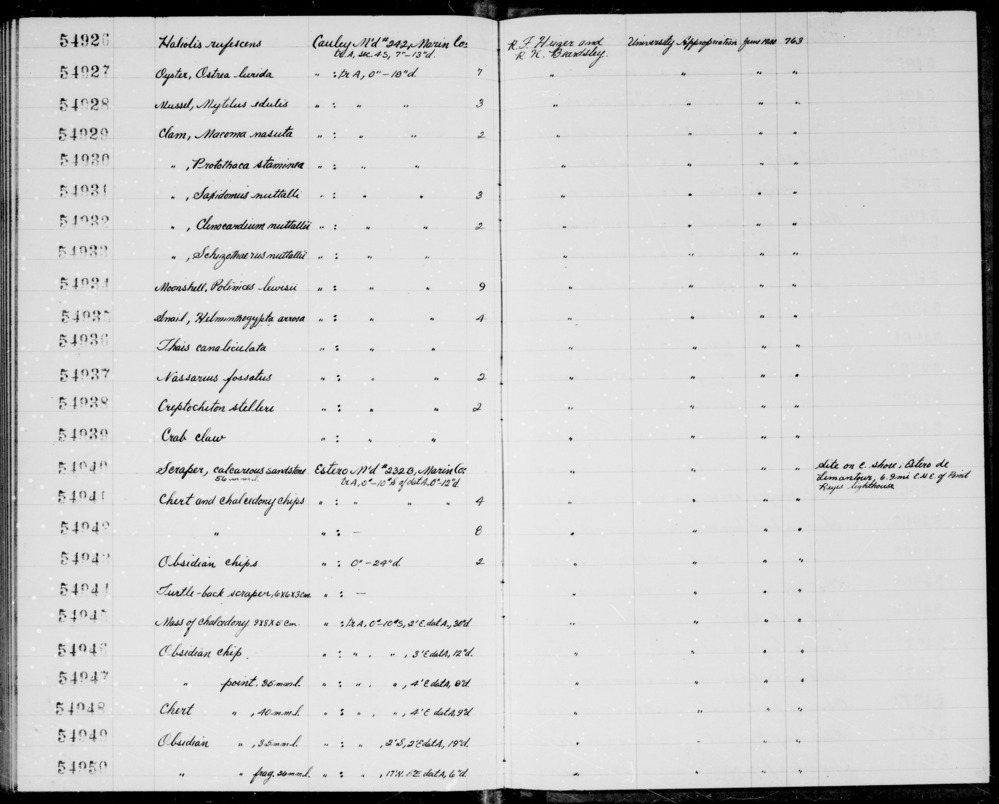 54926 Haliotis rufescens Cauley M'd #242, Marin Co: R. F. Heizer and University Appropriation June 763
tr. A, sec. 4S, 7"–13"d. R. K. Beardsley.
54927 Oyster, Ostrea lurida " : tr A, 0"–18"d 7 " " " "
54928 Mussel, Mytilus edulis " : " " 3 " " " "
54929 Clam, Macoma nasuta " : " " 2 " " " "
54930 " , Protothaca staminea " : " " " " " "
54931 " , Saxidomus nuttalli " : " " 3 " " " "
54932 " , Clinocardium nuttallii " : " " 2 " " " "
54933 " , Schizothaerus nuttallii " : " " " " " "
54934 Moonshell, Polinices lewisii " : " " 9 " " " "
54935 Snail, Helminthogypta arrosa " : " " 4 " " " "
54936 Thais canaliculata " : " " " " " "
54937 Nassarius fossatus " : " " 2 " " " "
54938 Creptochiton stelleri " : " " 2 " " " "
54939 Crab claw " : " " " " " "
54940 Scraper, calcareous sandstone Estero M'd #232B, Marin Co: " " " " Site on E. shore, Estero de
56 mm l. tr A, 0"–10"S of dat A. 0"–12"d Limantour, 6.9 mi E.N.E. of Point
Reyes lighthouse
54941 Chert and chalcedony chips " : " " " 4 " " " "
54942 " " : — 8 " " " "
54943 Obsidian chips " : 0"–24"d. 2 " " " "
54944 Turtle-back scraper, 6x6x3 cm. " : — " " " "
54945 Mass of chalcedony 9x8x5 cm. " : tr A, 0"–10"S, 2'E dat A, 30"d. " " " "
54946 Obsidian chip " : " " " , 3'E dat A, 12"d. " " " "
54947 " point, 35 mm l. " : " " " , 4'E dat A, 8"d. " " " "
54948 Chert " , 40 mm l. " : " " " , 4'E dat A, 9"d. " " " "
54949 Obsidian " , 35 mm l. " : " , 2'S, 2'E dat A, 19"d. " " " "
54950 " " frag. 26 mm l. " : " , 17'N. 5'E dat A, 6"d " " " "